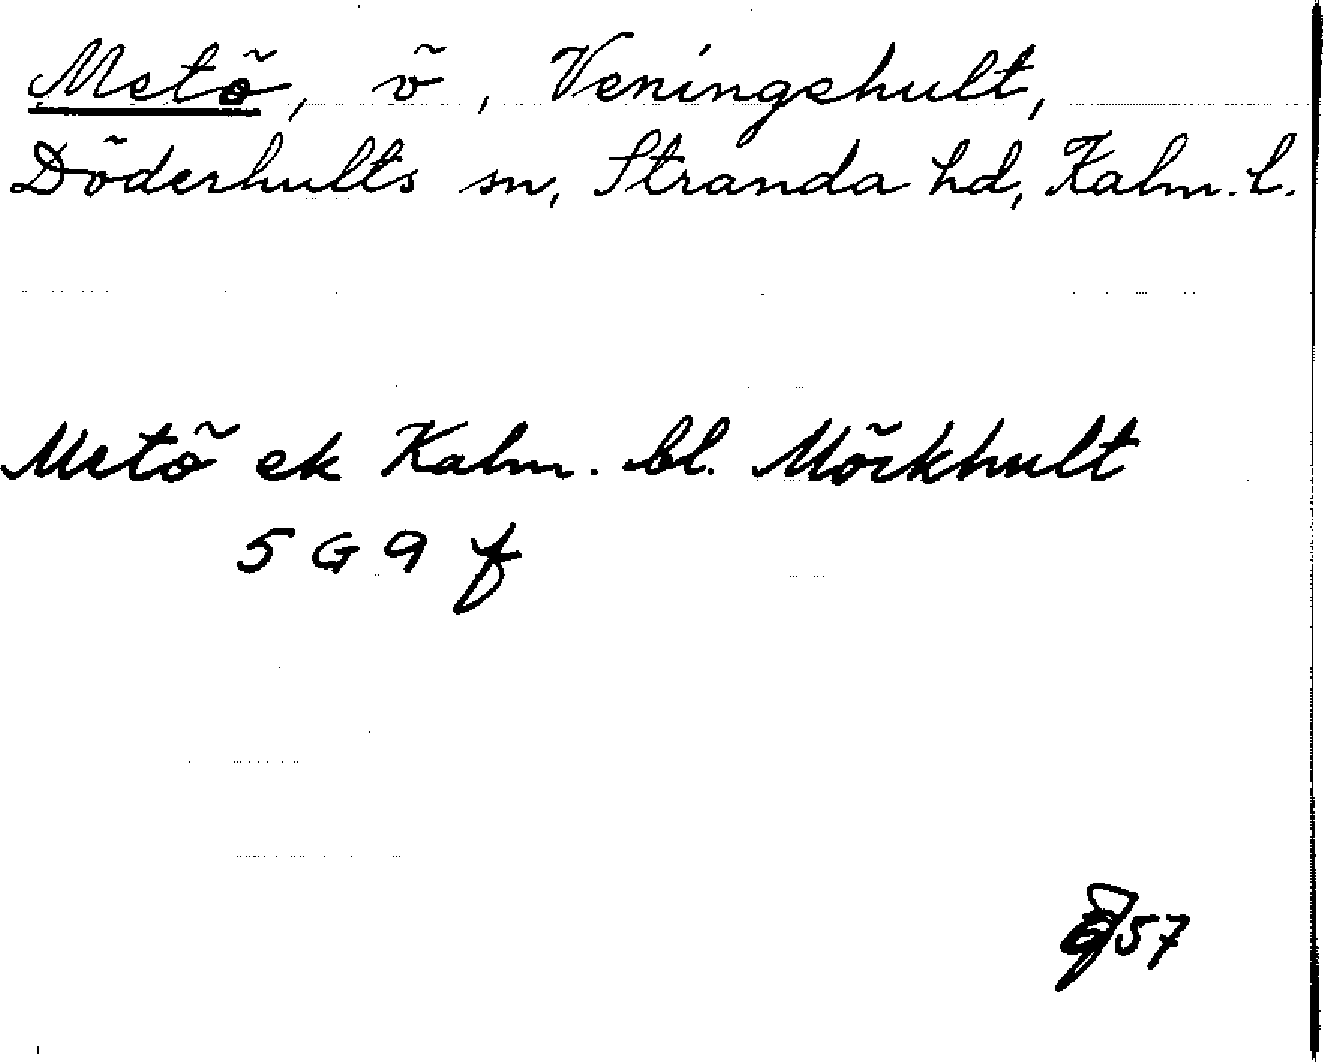 Metö, ö, Veningehult,
Döderhults sn, Stranda hd, Kalm. l.
Metö ek Kalm. bl. Möckhult
5 G 9 f
57